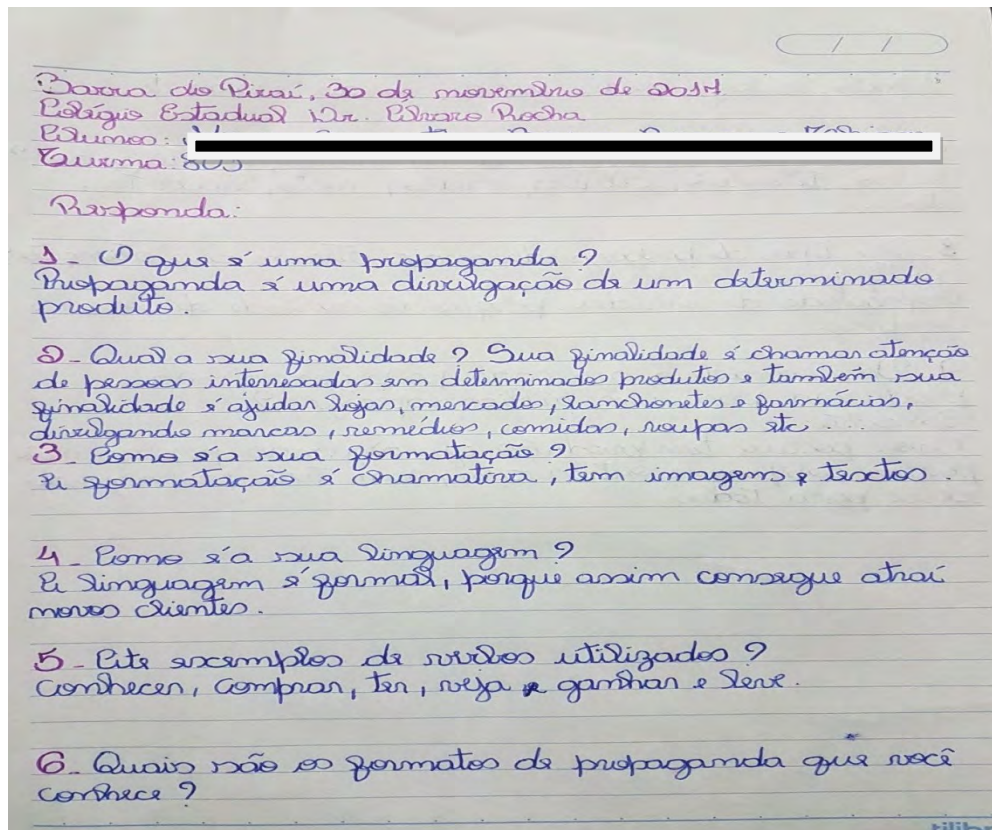 / /
Barra do Piraí, 30 de novembro de 2017
Colégio Estadual Dr. Álvaro Rocha
Alunos:
Turma: 803
Responda:
1- O que é uma propaganda ?
Propaganda é uma divulgação de um determinado
produto.
2- Qual a sua finalidade ? Sua finalidade é chamar atenção
de pessoas interresadas em determinados produtos e também sua
finalidade é ajudar lojas, mercados, lanchonetes e farmácias,
divulgando marcas, remédios, comidas, roupas etc ...
3- Como é a sua formatação ?
A formatação é chamativa, tem imagens e textos.
4- Como é a sua linguagem ?
A linguagem é formal, porque assim consegue atraí
novos clientes.
5- Cite exemplos de verbos utilizados ?
Conhecer, Comprar, Ter, veja e ganhar e leve.
6- Quais são os formatos de propaganda que você
conhece ?